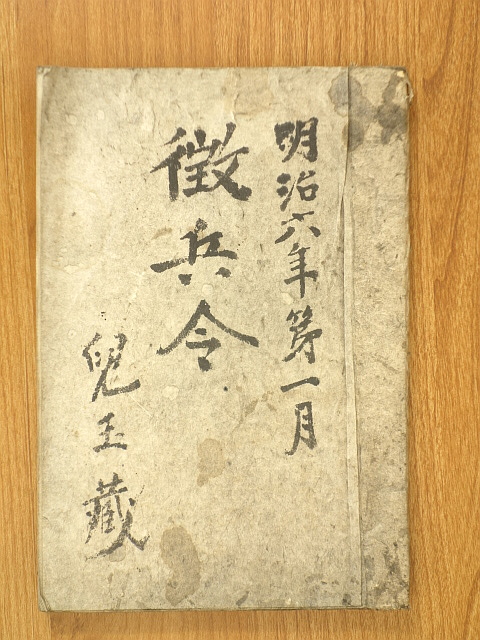 明治六年第一月
徴兵令
兒玉藏